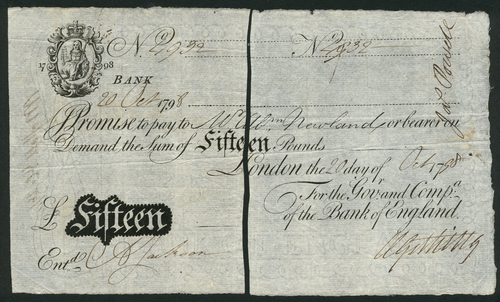 No. 2932 No. 2932
1798
BANK
20 Oct 1798
Promise to pay to Mr. Abm. Newland, or bearer on
Demand the Sum of Fifteen Pounds
London the 20 day of Oct 1798
For the Govr. and Compa.
of the Bank of England.
£ Fifteen
Entd. Jackson